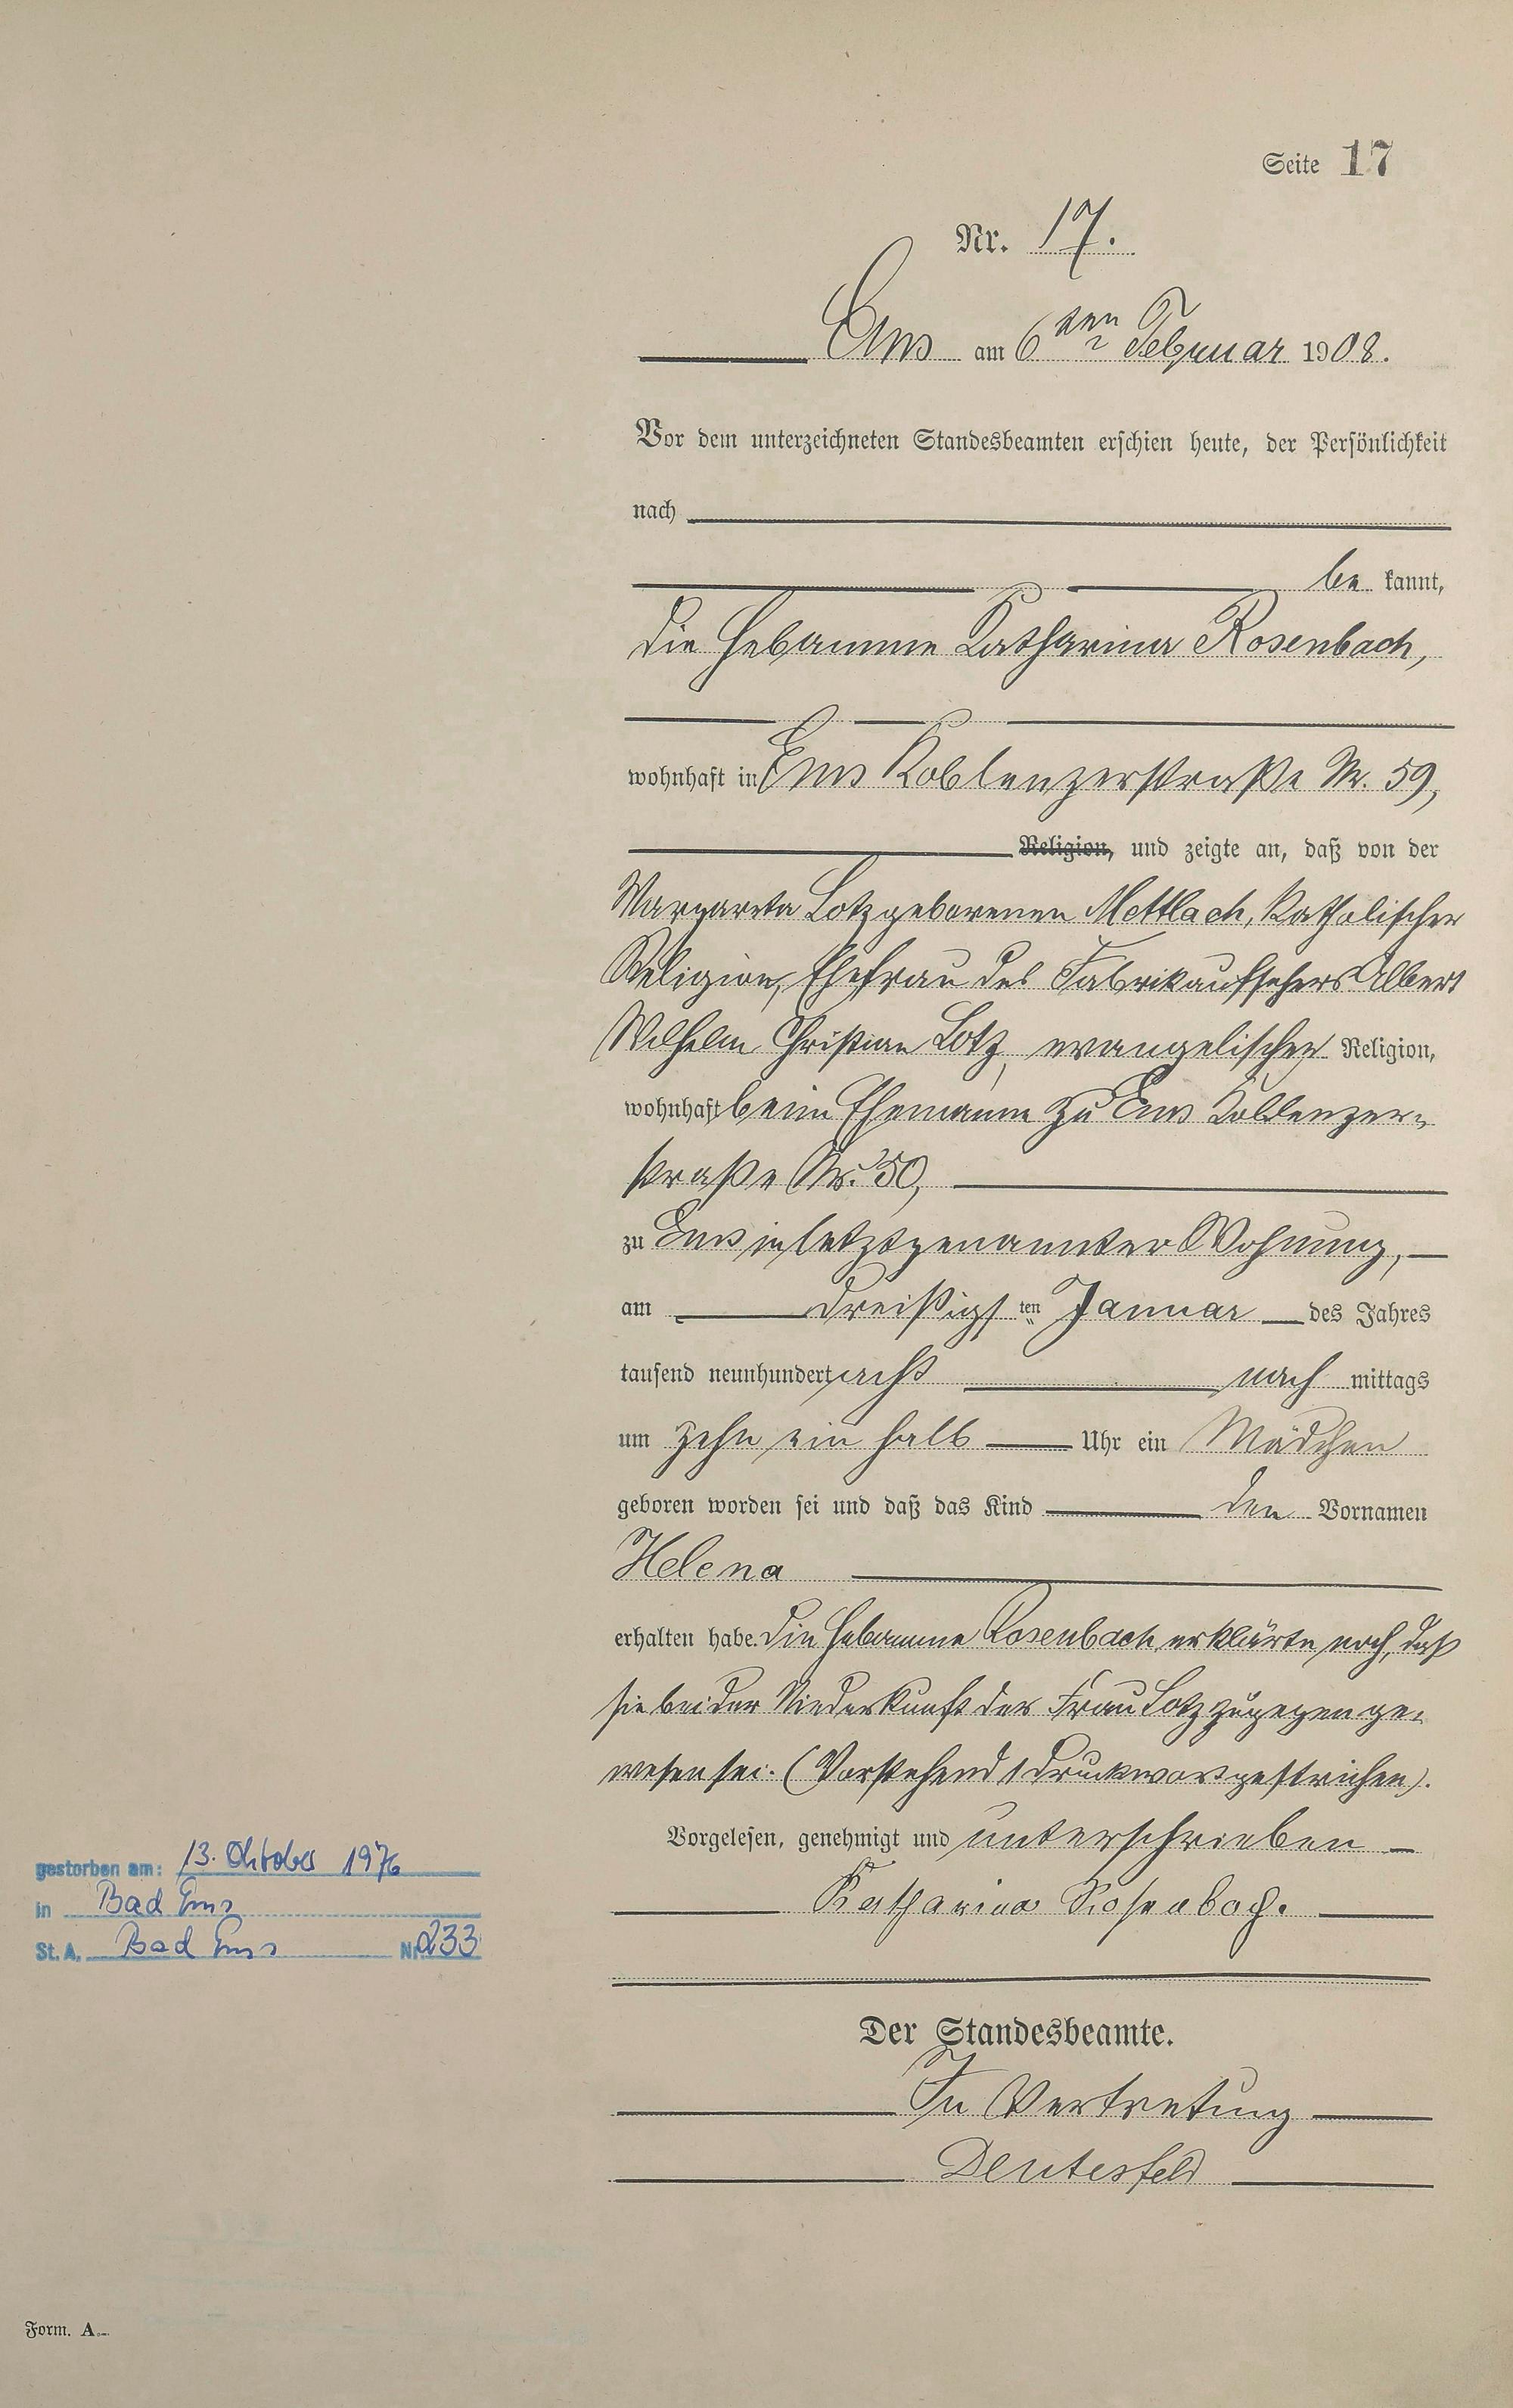 Seite 17
Nr. 17.
Ems am 6ten Februar 1908.
Vor dem unterzeichneten Standesbeamten erschien heute, der Persönlichkeit
nach
be kannt,
die Hebamme Katharina Rosenbach,
wohnhaft in Ems Koblenzerstraße Nr. 59,
Religion, und zeigte an, daß von der
Margareta Lotz geborenen Mettlach, katholischer
Religion, Ehefrau des Fabrikaufsehers Albert
Wilhelm Christian Lotz, evangelischer Religion,
wohnhaft beim Ehemanne zu Ems Koblenzer-
straße Nr. 50,
zu Ems in letztgenannter Wohnung,
am dreißigsten Januar des Jahres
tausend neunhundert acht nach mittags
um zehn ein halb Uhr ein Mädchen
geboren worden sei und daß das Kind den Vornamen
Helena
erhalten habe. Die Hebamme Rosenbach erklärte noch, daß
sie bei der Niederkunft der Frau Lotz zugegen ge-
wesen sei. (Vorstehend 1 Druckwort gestrichen).
Vorgelesen, genehmigt und unterschrieben
Katharina Rosenbach.
Der Standesbeamte.
In Vertretung
Deutesfeld
gestorben am: 13. Oktober 1976
in Bad Ems
St. A. Bad Ems Nr. 233
Form. A.